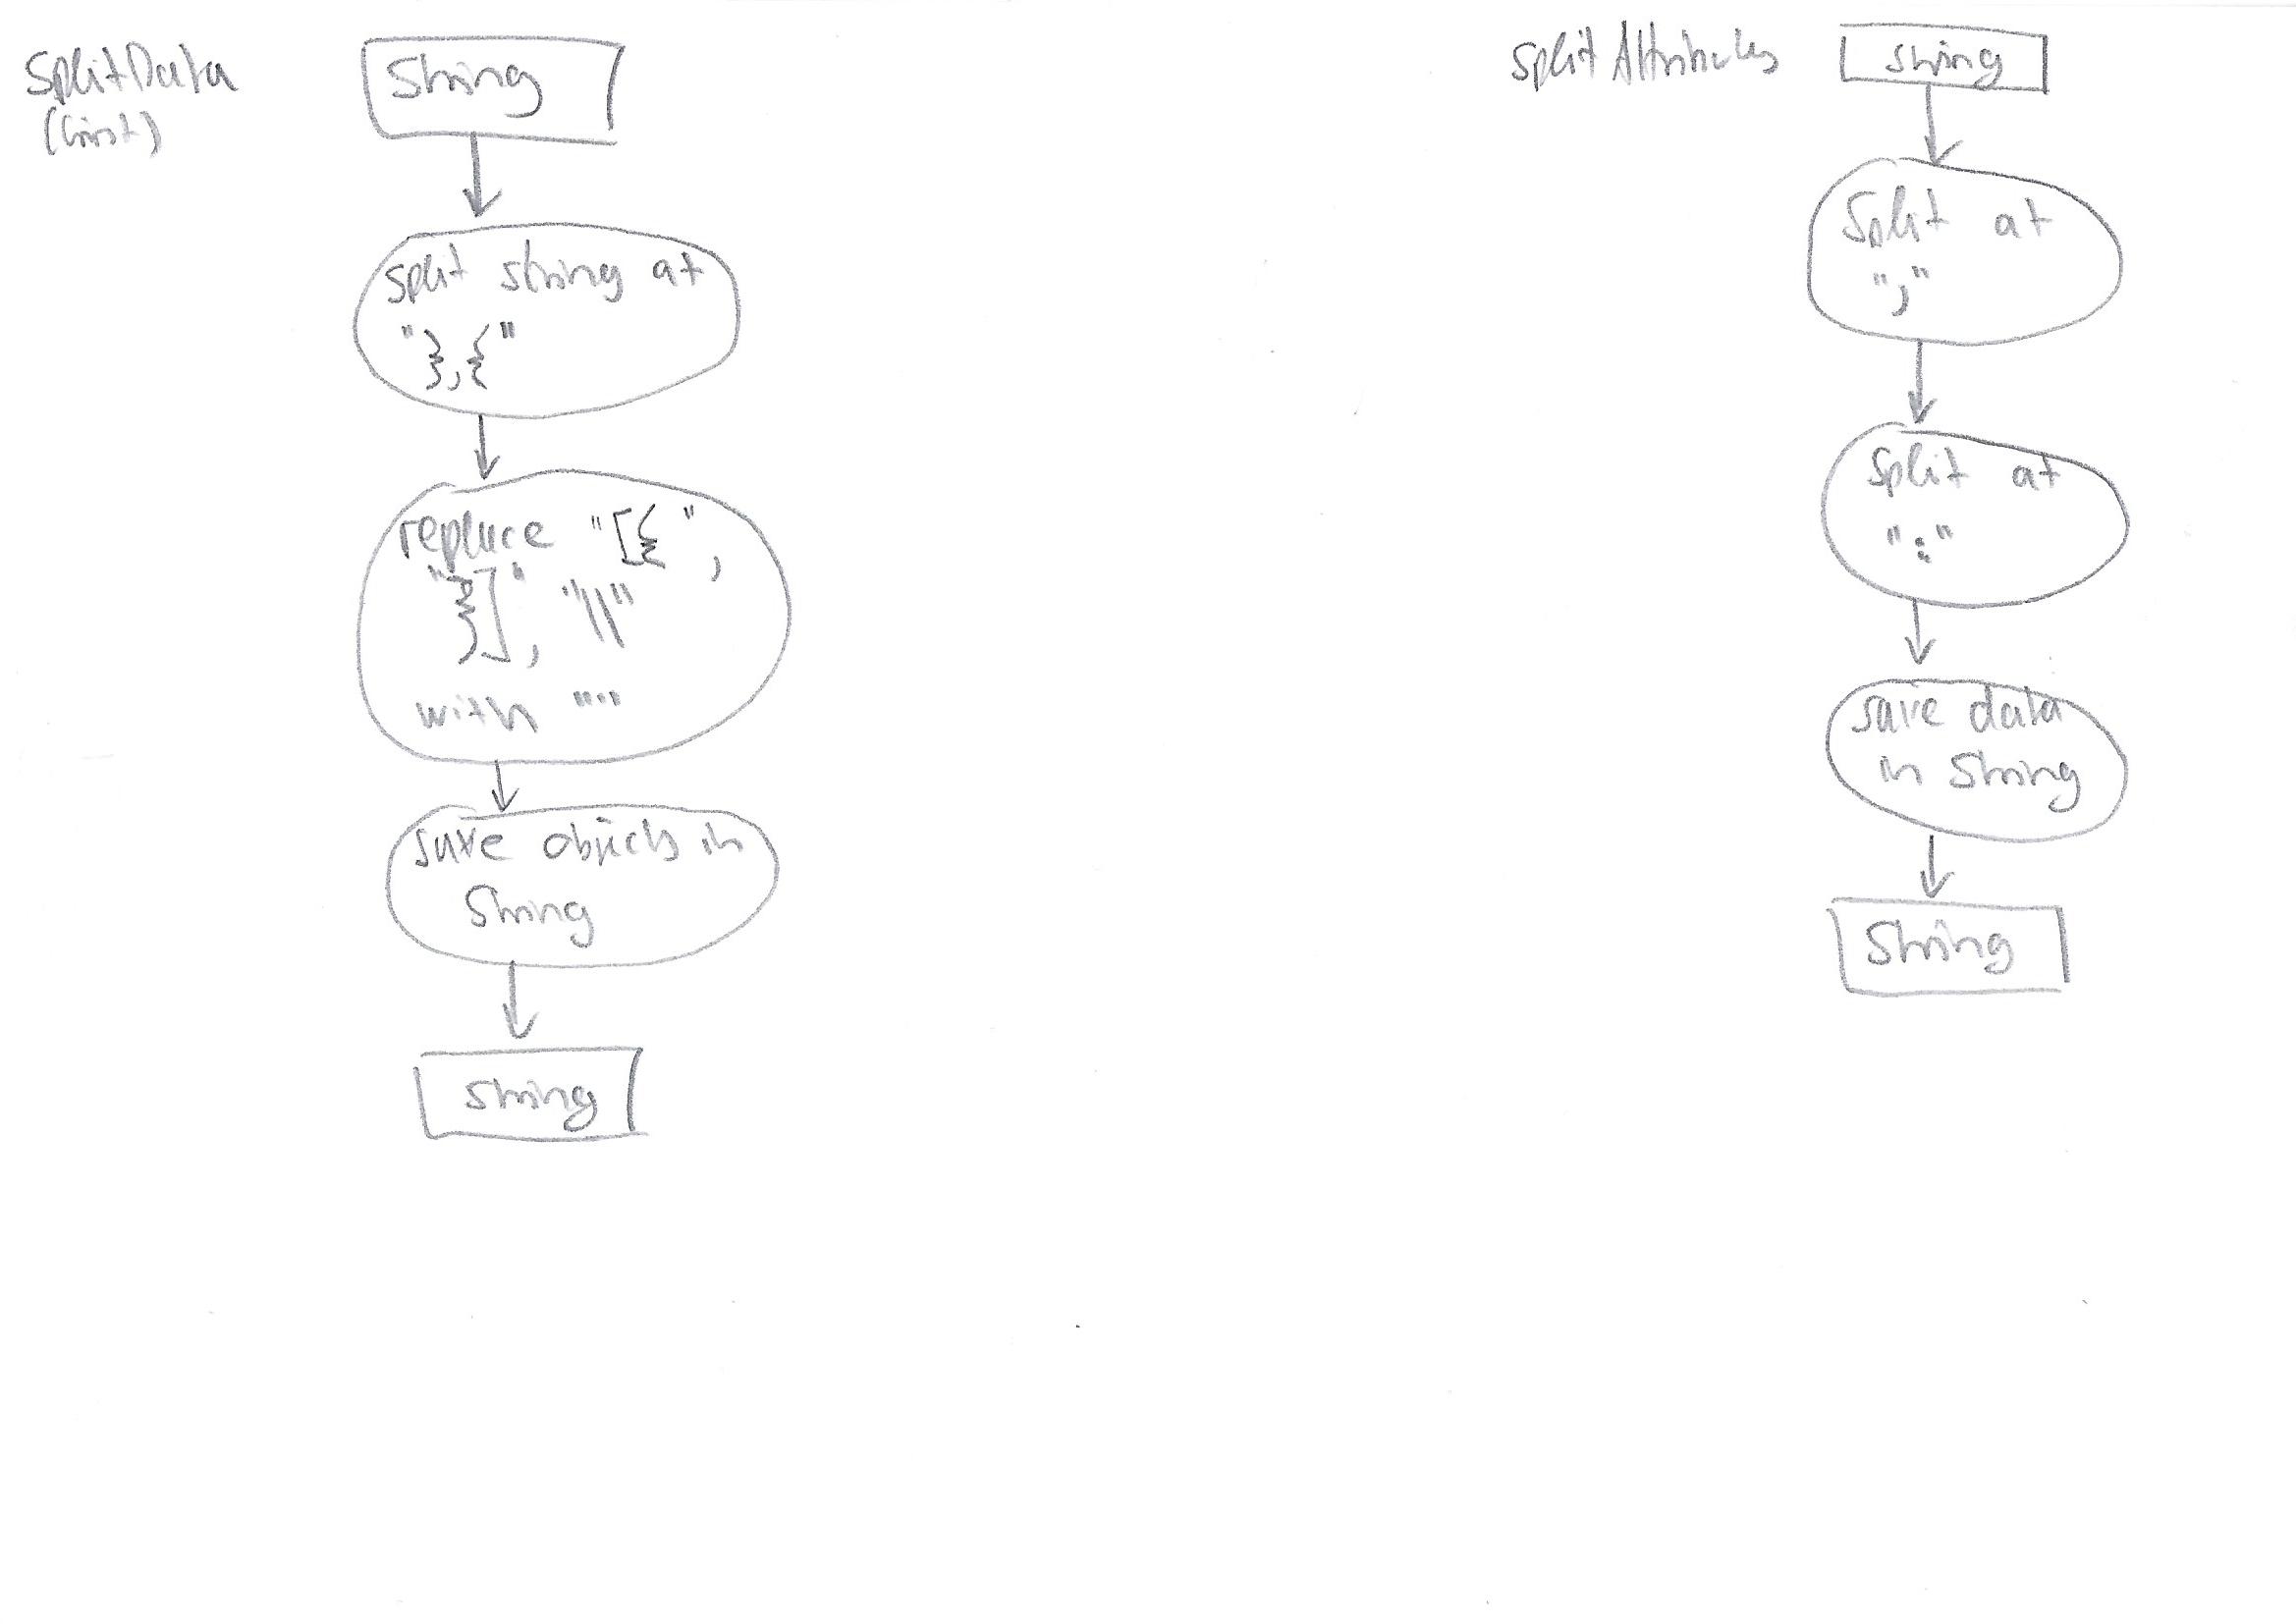 SplitData
(List)
String
split string at
"},{"
replace "[{",
"}]", "\\"
with ""
save objects in
String
String
Split Attributes
String
Split at
","
Split at
":"
save data
in String
String